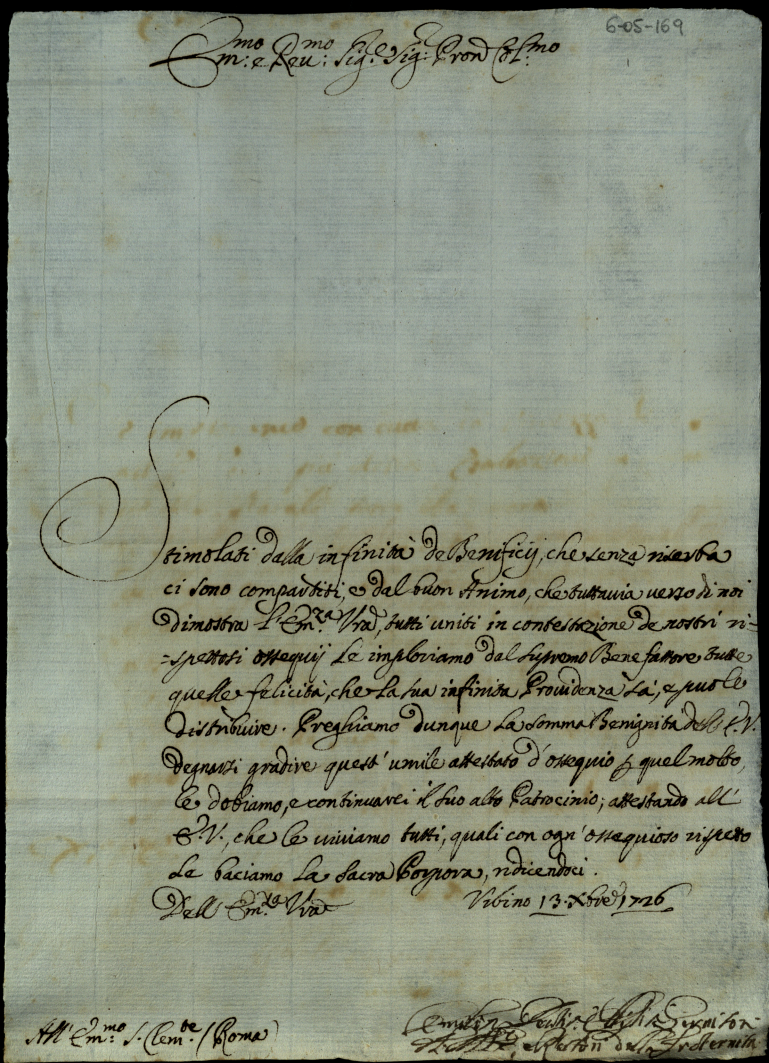 6-05-169
Em:mo e Reu:mo Sig.r Sig.r Pron Col:mo
Stimolati dalla infinità de Beneficij, che senza riserba
ci sono compartiti, e dal buon Animo, che tuttauia uerso di noi
dimostra l'Em:za Vra, tutti uniti in contestazione de nostri ri=
=spettosi ossequij Le imploriamo dal supremo Benefattore tutte
quelle felicità, che la sua infinita Prouidenza sà, e puole
distribuire. Preghiamo dunque La somma Benignità dell'E.V.
degnarsi gradire quest'umile attestato d'ossequio p quel molto,
le dobiamo, e continuarci il suo alto Patrocinio; attestando all'
E.V., che le uiuiamo tutti, quali con ogn'ossequioso rispetto
Le baciamo La Sacra Porpora, ridicendoci.
Dell'Em:za Vra Vrbino 13. Xbre 1726
All'Em:mo S. Clem:te / Roma
della Fraternita